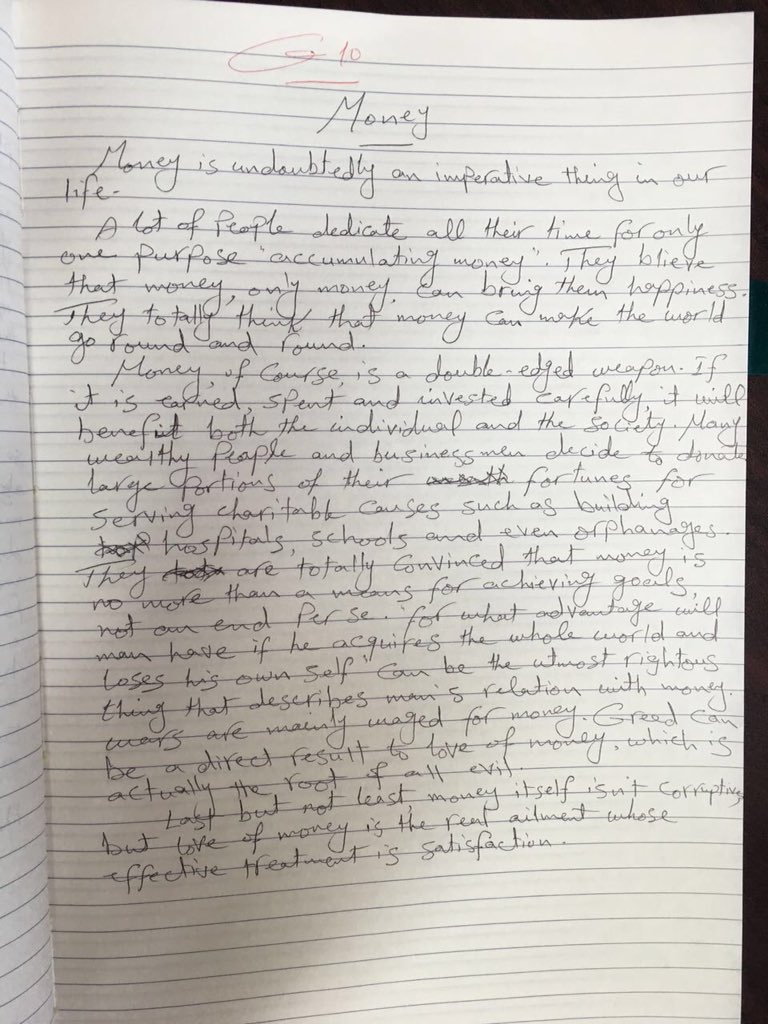 10
Money
Money is undoubtedly an imperative thing in our
life.
A lot of People dedicate all their time for only
one purpose "accumulating money". They blieve
that money, only money, can bring them happiness.
They totally think that money can make the world
go round and round.
Money, of Course, is a double-edged weapon. If
it is earned, spent and invested carefully, it will
benefit both the individual and the society. Many
wealthy People and businessmen decide to donate
large Portions of their fortunes for
serving charitable causes such as building
hospitals, schools and even orphanages.
They are totally convinced that money is
no more than a means for achieving goals,
not an end Per se. "for what advantage will
man have if he acquires the whole world and
loses his own self" Can be the utmost rightous
thing that describes man's relation with money.
wars are mainly waged for money. Greed can
be a direct result to love of money, which is
actually the root of all evil.
Last but not least, money itself isn't corruptive,
but love of money is the real ailment whose
effective treatment is satisfaction.